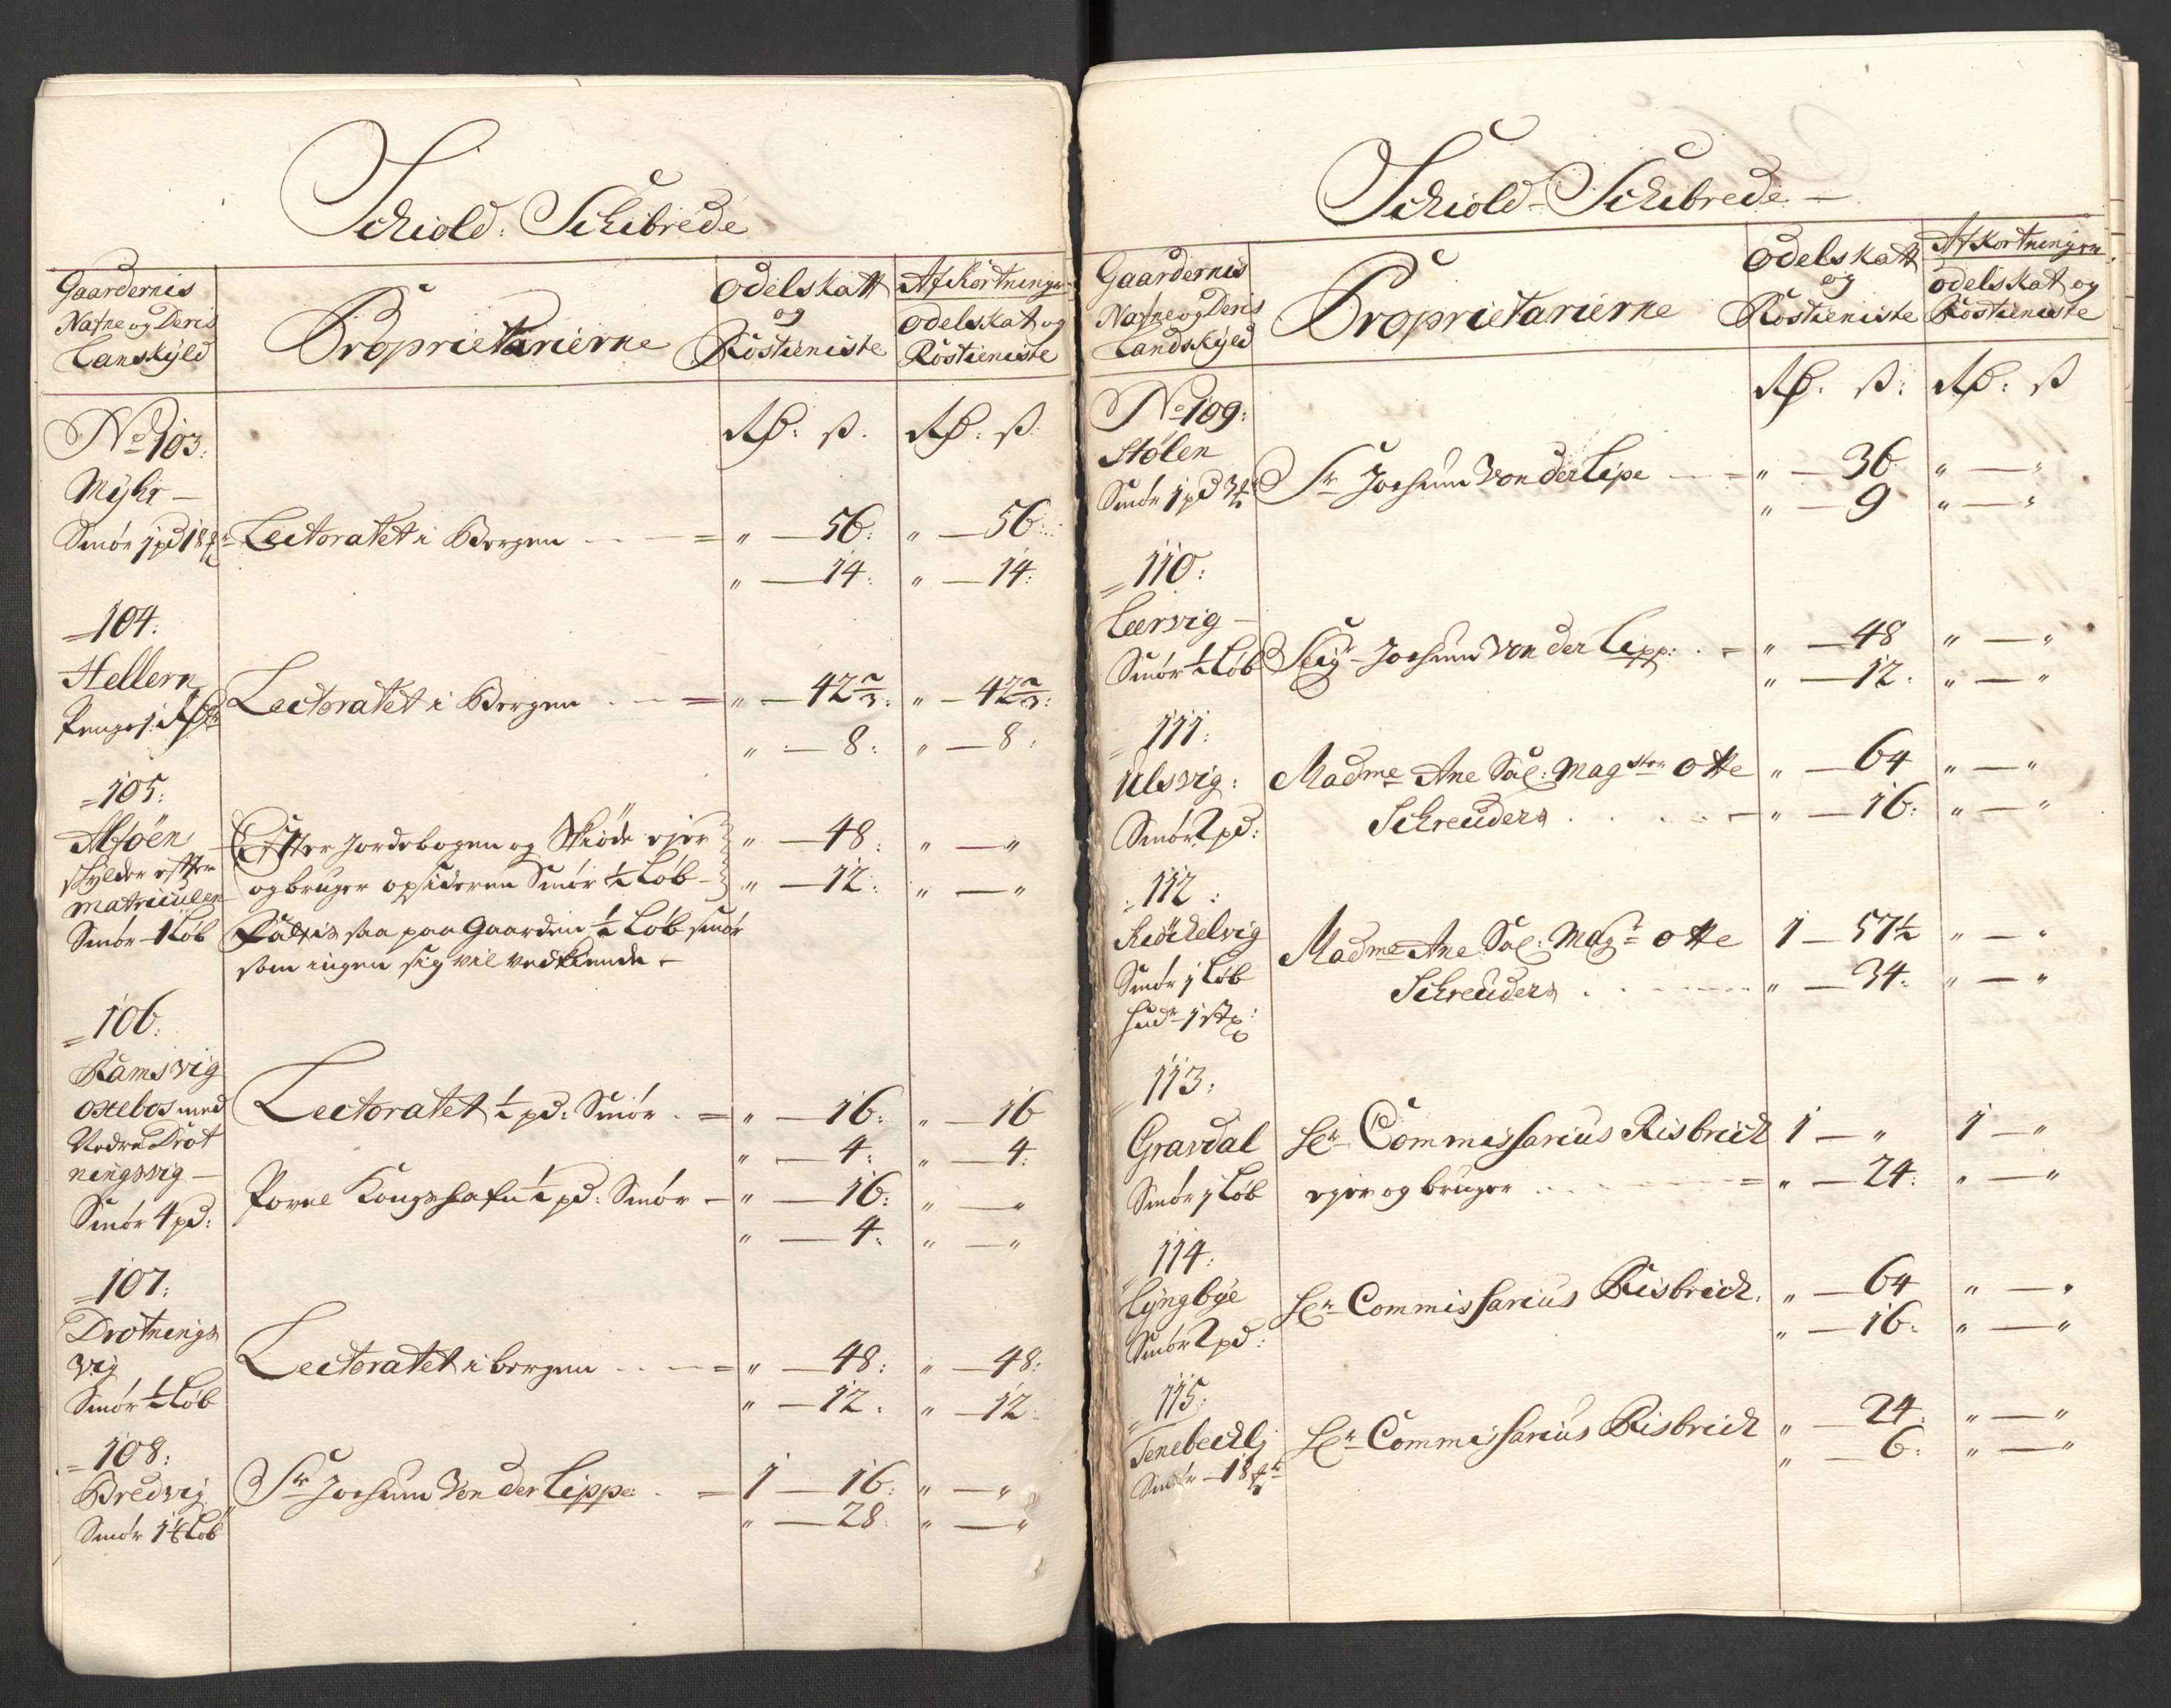 Schiold: Schibrede
Gaardernis
Nafne og Deris
Lanskÿld
Proprietarierne
Odelskatt
og
Rostieniste
Afkortninge
Odelskat og
Rostieniste
Rd: ß. Rd: ß:
No 103:
Mÿhr —
Smór 1 pd 18
Lectoratet i Bergen — = " — 56: " — 56:
" — 14: " — 14:
= 104:
Hellern
Penge 1:
Lectoratet i Bergen — = " — 42 2/3: " — 42 2/3:
" — 8: " — 8:
= 105:
Alföen
skylder efter
Matriculen
Smór — 1 Lób
Efter Jordebogen og Skiöde ejer " — 48: " — "
og bruger opsideren Smór ½ Lób — " — 12: " — "
Fattis saa paa Gaarden ½ Lób smór
som ingen sig vil vedkiende —
= 106:
Ramsvig
Ostebos med
Nedre Drot
ningsvig —
Smór 4 pd:
Lectoratet ½ pd: Smór . = " — 16: " — 16
" — 4: " — 4:
Povel Kongshafn ½ pd: Smór — " — 16: " — "
" — 4: " — "
= 107:
Drotnings
vig
Smór ½ Lób
Lectoratet i bergen — = " — 48: " — 48:
" — 12: " — 12:
= 108:
Bredvig
Smór 1 Lób
Sr Jochum Von der Lippe . = 1 — 16: " — "
" — 28: " — "
Schiold-Schibrede —
Gaardernis
Nafne og Deris
Landskÿld
Proprietarierne
Odelskatt
og
Rostieniste
Afkortningen
Odelskat og
Rostieniste
Rd: ß: Rd: ß
No 109:
Stólen
Smór 1 pd 3
Sr Jochum Von der Lipe — " — 36 " — "
" — 9 " — "
= 110:
Leervig —
Smór ½ Lób
Seig- Jochum Von der Lipp: . = " — 48 " — "
" — 12: " — "
= 111:
Ulsvig:
Smór 2 pd:
Madme Ane Sal: Magster Otte " — 64 " — "
Schreuders . . . — " — 16: " — "
: 112:
Smór 1 Lób
Madme Ane Sal: Magr Otte 1 — 57½ " — "
Schreuders . — " — 34: " — "
= 113:
Gravdal
Smór 1 Lób
Hr Commissarius Risbrich 1 — " 1 — "
ejer og bruger — = " — 24: " — "
" 114:
Lyngbye
Smór 2 pd:
Hr Commissarius Risbrich . " — 64 " — "
" — 16: " — "
" 115:
Smór — 18
Hr Commissarius Risbrich " — 24: " — "
" — 6: " — "